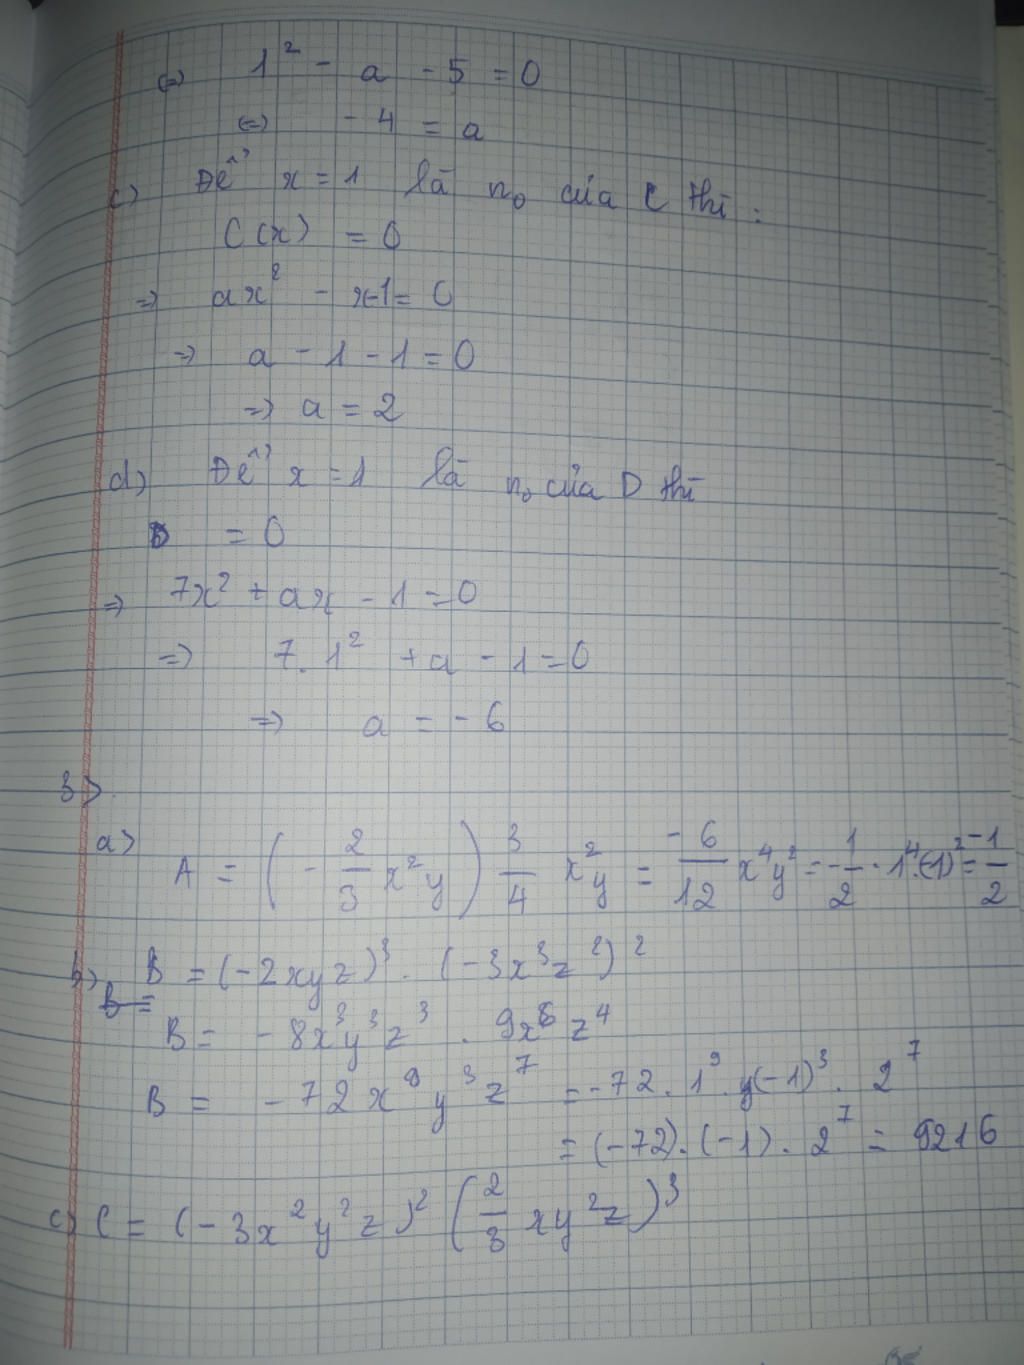 (=) 1² - a - 5 = 0
(=) - 4 = a
c) Để x = 1 là n₀ của C thì :
C(x) = 0
=) ax² - x-1 = 0
=) a - 1 - 1 = 0
=) a = 2
d) Để x = 1 là n₀ của D thì
D = 0
=) 7x² + ax - 1 = 0
=) 7. 1² + a - 1 = 0
=) a = - 6
3>.
a) A = (- 2/3 x²y) 3/4 x²y = -6/12 x⁴y² = -1/2 . 1⁴.(-1)² = -1/2
b) B = (-2xyz)³ . (-3x³z²)²
B =
B = - 8x³y³z³ . 9x⁶ z⁴
B = - 72 x⁹ y³ z⁷ = -72 . 1⁹ . y(-1)³ . 2⁷
= (-72) . (-1) . 2⁷ = 9216
c) C = (-3x²y²z)² (2/3 xy²z)³